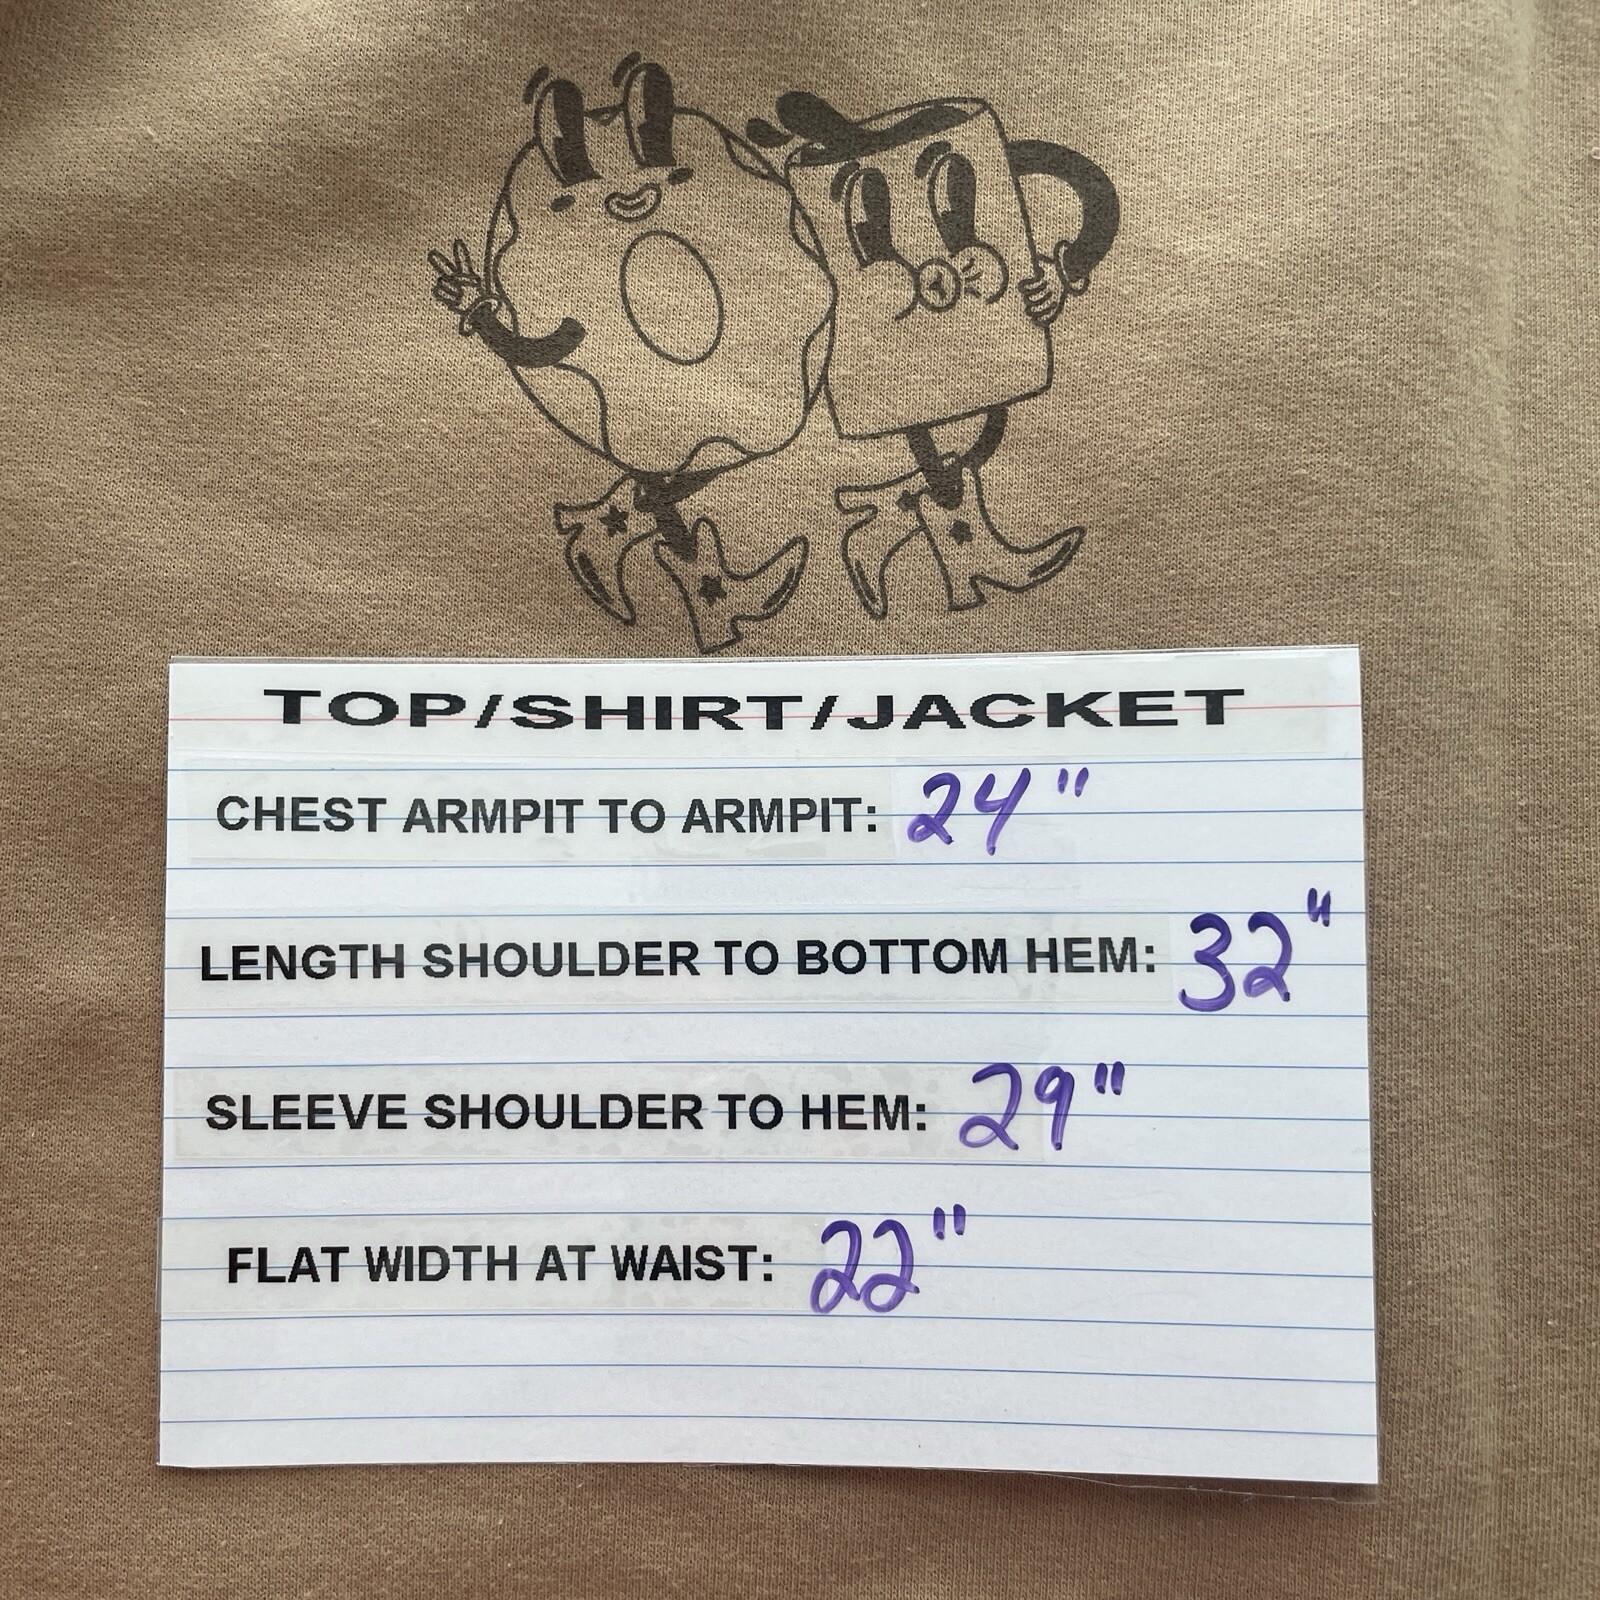 TOP/SHIRT/JACKET
CHEST ARMPIT TO ARMPIT: 24"
LENGTH SHOULDER TO BOTTOM HEM: 32"
SLEEVE SHOULDER TO HEM: 29"
FLAT WIDTH AT WAIST: 22"